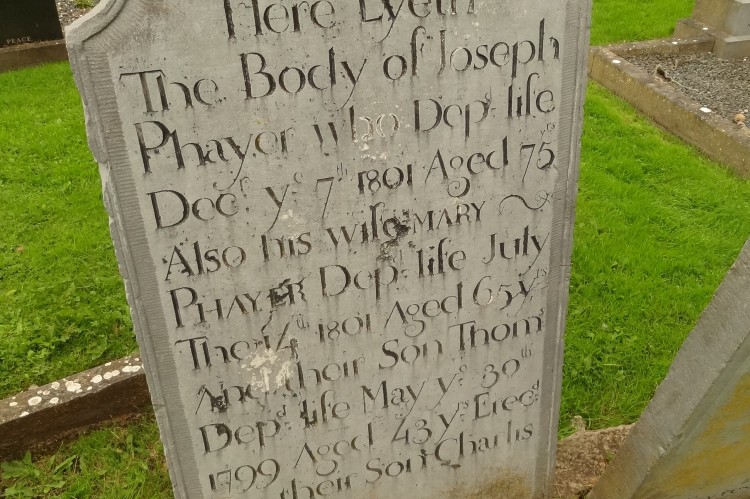 PEACE
Here Lyeth
The Body of Joseph
Phayer who Depd life
Decr ye 7th 1801 Aged 75 yrs
Also his wife MARY
PHAYER Depd life July
The 14th 1801 Aged 65 yrs
And their Son Thoms
Depd life May ye 30th
1799 Aged 43 yrs Erecd
their Son Charlis